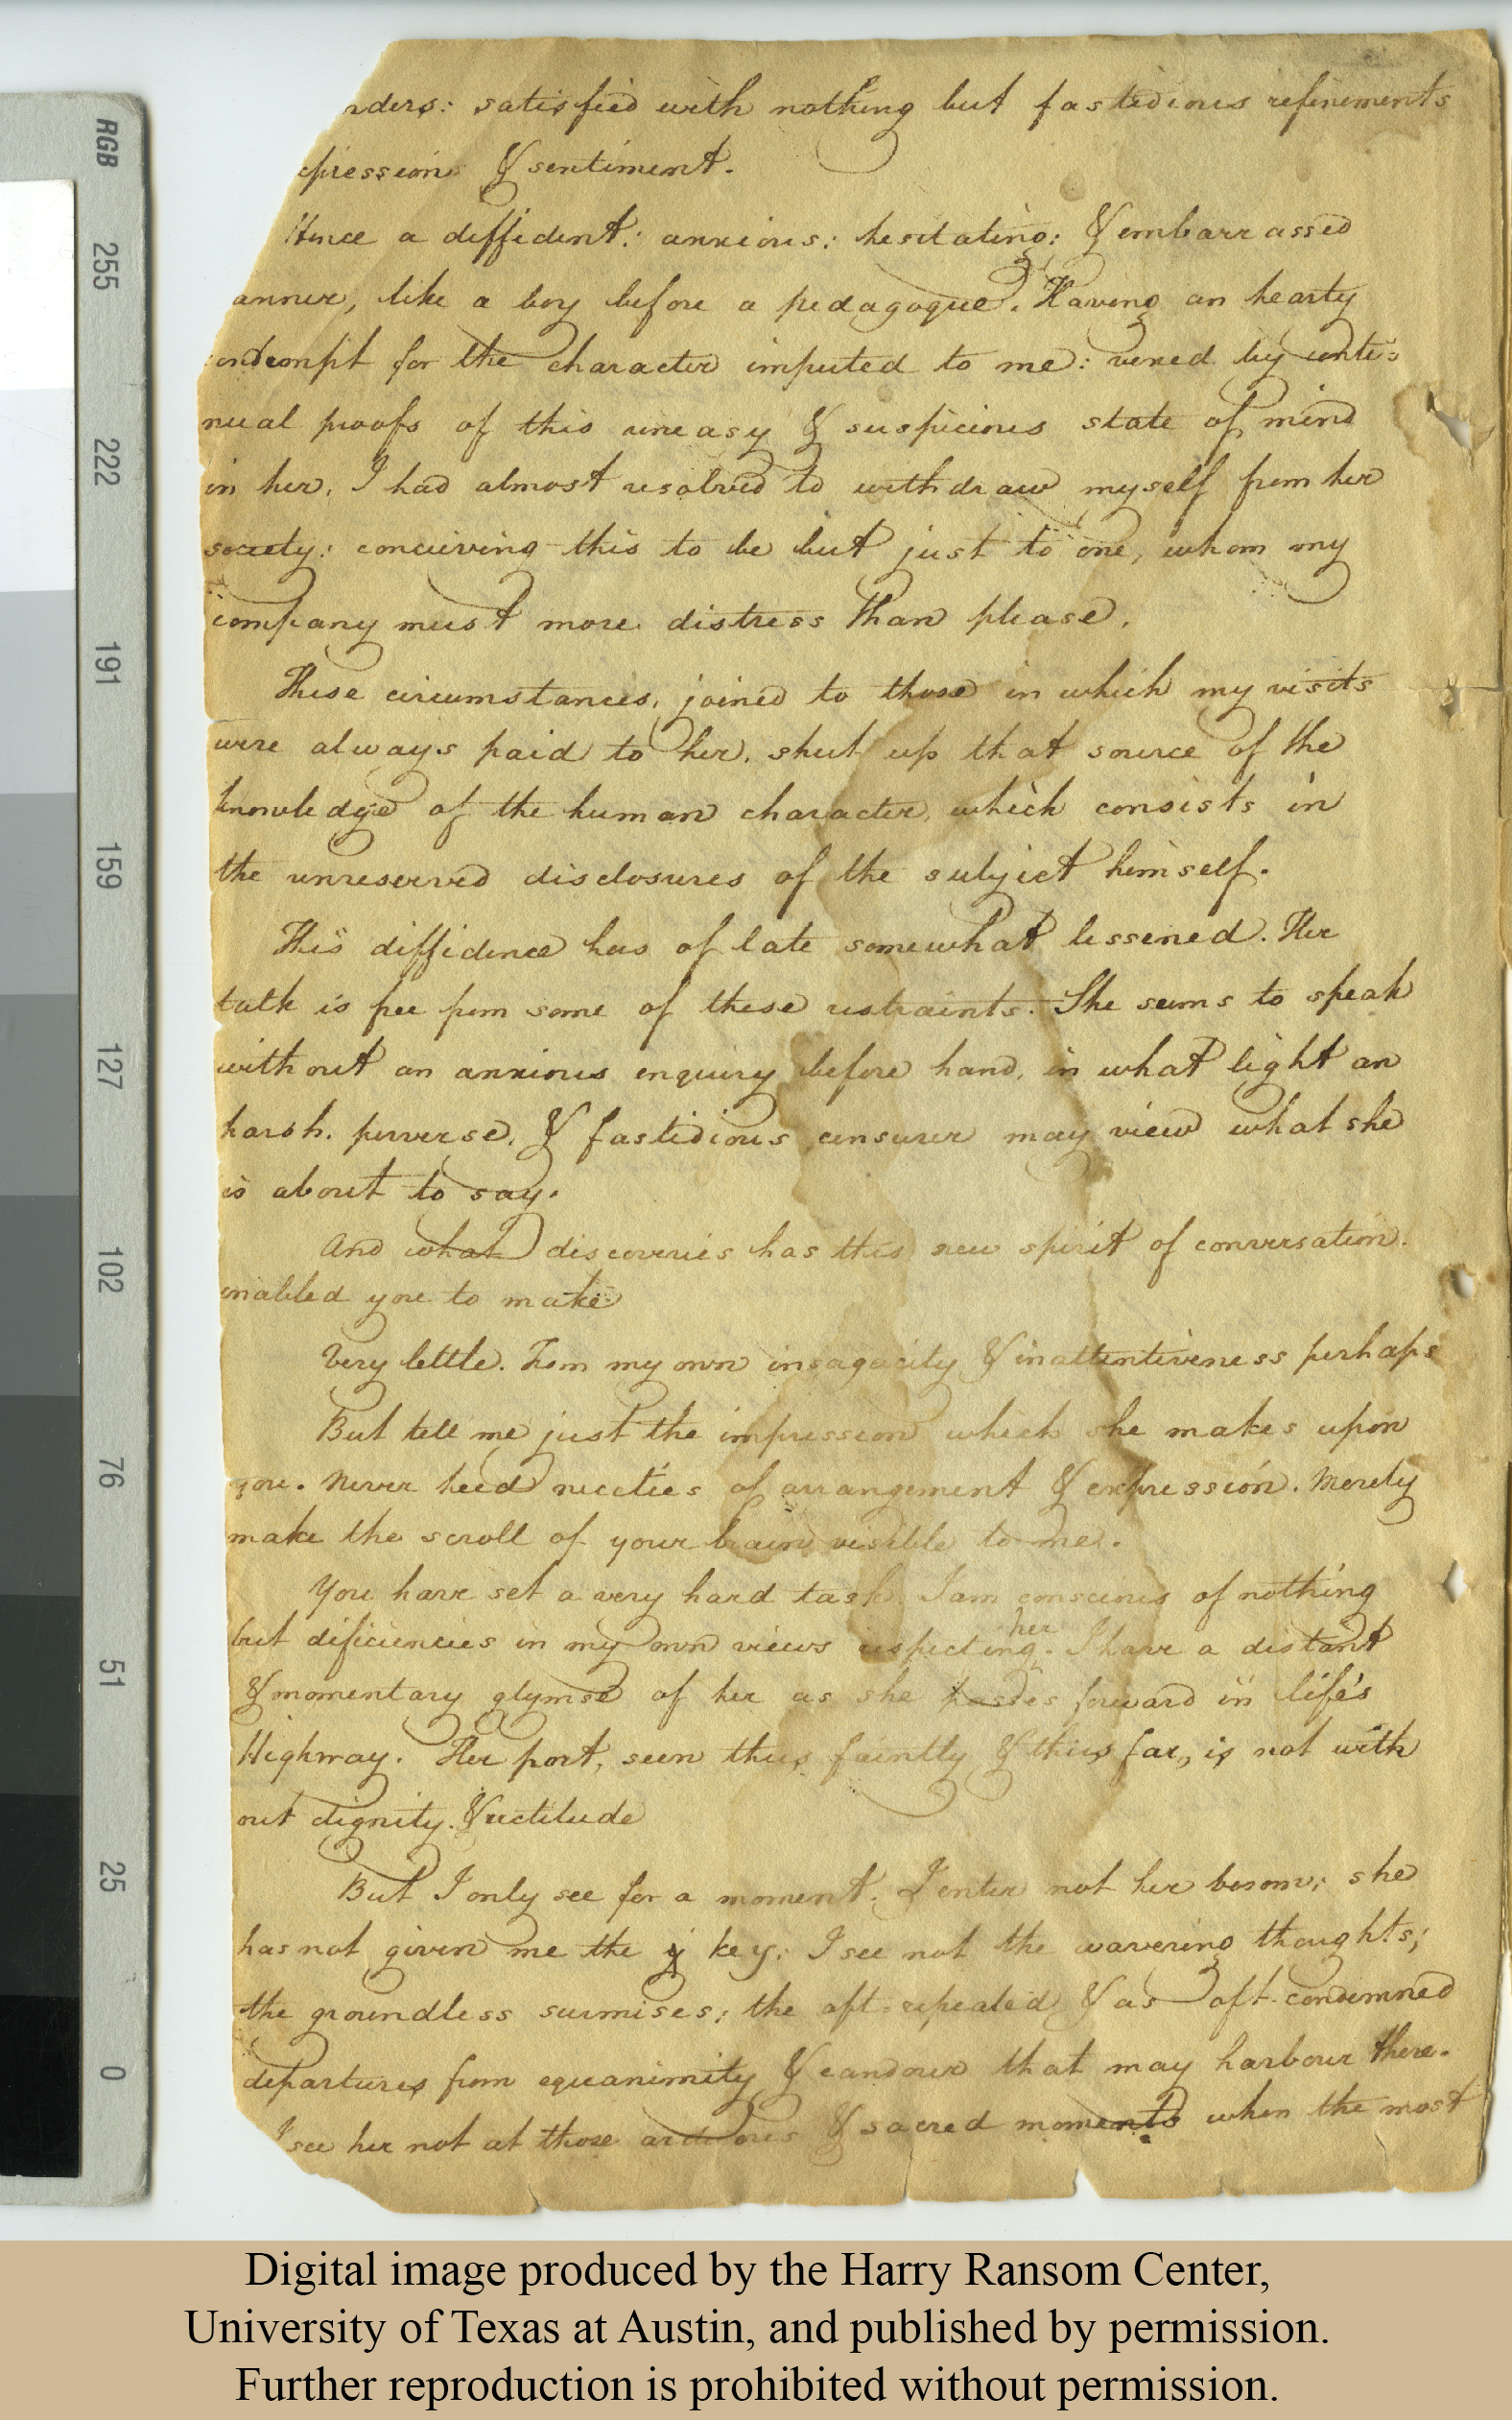 nders: satisfied with nothing but fastidious refinements
pression & sentiment.
Hence a diffident: anxious: hesitating: & embarrassed
anner, like a boy before a pedagogue. Having an hearty
ontempt for the character imputed to me: vexed by conti=
nual proofs of this uneasy & suspicious state of mind
in her, I had almost resolved to withdraw myself from her
society: conceiving this to be but just to one, whom my
company must more distress than please.
These circumstances, joined to those in which my visits
were always paid to her, shut up that source of the
knowledge of the human character, which consists in
the unreserved disclosures of the subject himself.
This diffidence has of late somewhat lessened. Her
talk is free from some of these restraints. She seems to speak
without an anxious enquiry before hand, in what light an
harsh, perverse, & fastidious censurer may view what she
is about to say.
And what discoveries has this new spirit of conversation
enabled you to make
Very little. From my own insagacity & inattentiveness perhaps
But tell me just the impression which she makes upon
you. Never heed niceties of arrangement & expression. Merely
make the scroll of your brain visible to me.
You have set a very hard task. I am conscious of nothing
but deficiencies in my own views respecting her. I have a distant
& momentary glymse of her as she passes forward in life's
Highway. Her port, seen thus faintly & thus far, is not with
out dignity. & rectitude
But I only see for a moment. I enter not her bosom; she
has not given me the key: I see not the wavering thoughts;
the groundless surmises; the oft-repeated & as oft-condemned
departures from equanimity & candour that may harbour there.
I see her not at those arduous & sacred moments when the most
RGB
255
222
191
159
127
102
76
51
25
0
Digital image produced by the Harry Ransom Center,
University of Texas at Austin, and published by permission.
Further reproduction is prohibited without permission.